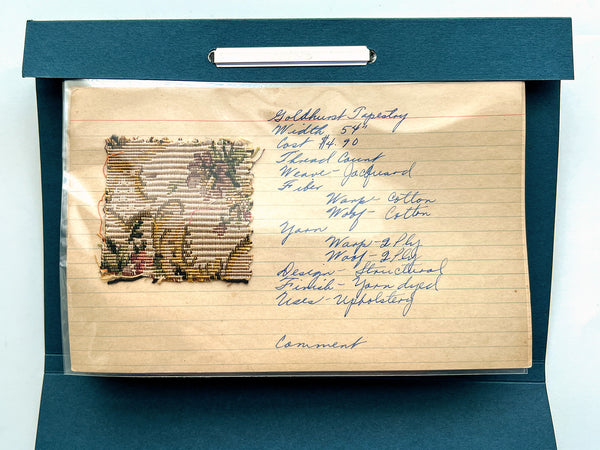 Goldhurst Tapestry
Width 54"
Cost $4.90
Thread Count
Weave - Jacquard
Fiber
Warp - Cotton
Woof - Cotton
Yarn
Warp - 2 Ply
Woof - 2 Ply
Design - Structural
Finish - Yarn dyed
Uses - Upholstery
Comment